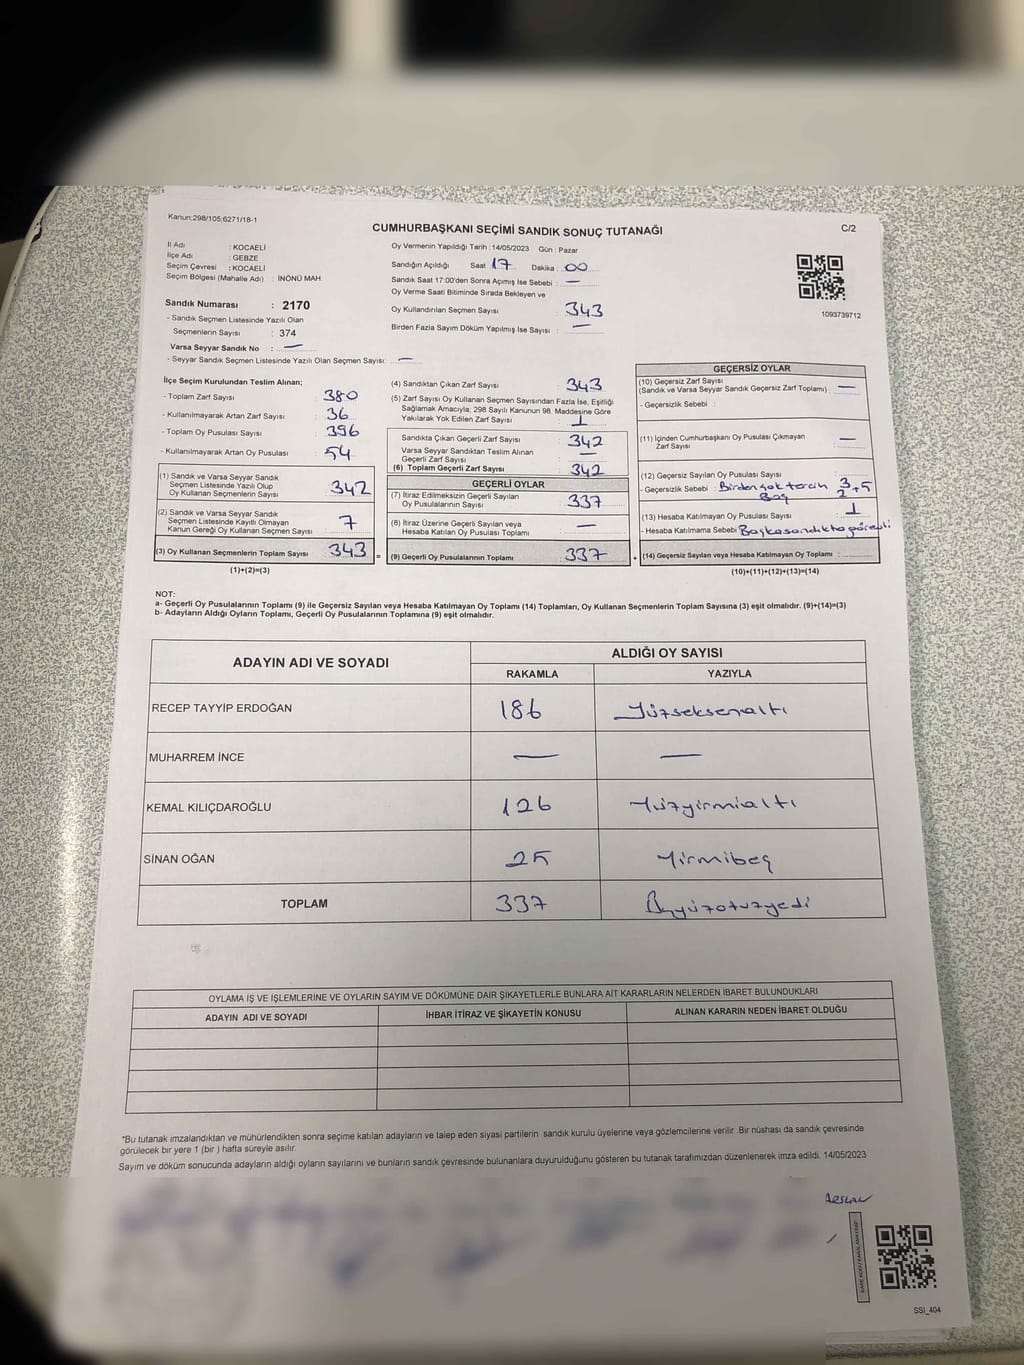 Kanun:298/105;6271/18-1
CUMHURBAŞKANI SEÇİMİ SANDIK SONUÇ TUTANAĞI
C/2
İl Adı : KOCAELİ
İlçe Adı : GEBZE
Seçim Çevresi : KOCAELİ
Seçim Bölgesi (Mahalle Adı) : İNÖNÜ MAH.
Sandık Numarası : 2170
- Sandık Seçmen Listesinde Yazılı Olan
Seçmenlerin Sayısı : 374
Varsa Seyyar Sandık No : —
- Seyyar Sandık Seçmen Listesinde Yazılı Olan Seçmen Sayısı: —
Oy Vermenin Yapıldığı Tarih : 14/05/2023 Gün : Pazar
Sandığın Açıldığı Saat 17 Dakika : 00
Sandık Saat 17:00'den Sonra Açılmış İse Sebebi : —
Oy Verme Saati Bitiminde Sırada Bekleyen ve
Oy Kullandırılan Seçmen Sayısı : 343
Birden Fazla Sayım Döküm Yapılmış İse Sayısı : —
1093739712
İlçe Seçim Kurulundan Teslim Alınan;
- Toplam Zarf Sayısı : 380
- Kullanılmayarak Artan Zarf Sayısı : 36
- Toplam Oy Pusulası Sayısı : 396
- Kullanılmayarak Artan Oy Pusulası : 54
(1) Sandık ve Varsa Seyyar Sandık
Seçmen Listesinde Yazılı Olup
Oy Kullanan Seçmenlerin Sayısı : 342
(2) Sandık ve Varsa Seyyar Sandık
Seçmen Listesinde Kayıtlı Olmayan
Kanun Gereği Oy Kullanan Seçmen Sayısı :
(3) Oy Kullanan Seçmenlerin Toplam Sayısı : 343
(1)+(2)=(3)
(4) Sandıktan Çıkan Zarf Sayısı : 343
(5) Zarf Sayısı Oy Kullanan Seçmen Sayısından Fazla İse, Eşitliği
Sağlamak Amacıyla; 298 Sayılı Kanunun 98. Maddesine Göre
Yakılarak Yok Edilen Zarf Sayısı : 1
Sandıkta Çıkan Geçerli Zarf Sayısı : 342
Varsa Seyyar Sandıktan Teslim Alınan
Geçerli Zarf Sayısı : —
(6) Toplam Geçerli Zarf Sayısı : 342
GEÇERLİ OYLAR
(7) İtiraz Edilmeksizin Geçerli Sayılan
Oy Pusulasının Sayısı : 337
(8) İtiraz Üzerine Geçerli Sayılan veya
Hesaba Katılan Oy Pusulası Toplamı : —
= (9) Geçerli Oy Pusulalarının Toplamı : 337
GEÇERSİZ OYLAR
(10) Geçersiz Zarf Sayısı
(Sandık ve Varsa Seyyar Sandık Geçersiz Zarf Toplamı) : —
- Geçersizlik Sebebi :
(11) İçinden Cumhurbaşkanı Oy Pusulası Çıkmayan
Zarf Sayısı : —
(12) Geçersiz Sayılan Oy Pusulası Sayısı
- Geçersizlik Sebebi : Birden çok tercih 3
Boş 2 +5
(13) Hesaba Katılmayan Oy Pusulası Sayısı : 1
- Hesaba Katılmama Sebebi : Başka sandıkta görevli
+ (14) Geçersiz Sayılan veya Hesaba Katılmayan Oy Toplamı :
(10)+(11)+(12)+(13)=(14)
NOT:
a- Geçerli Oy Pusulalarının Toplamı (9) ile Geçersiz Sayılan veya Hesaba Katılmayan Oy Toplamı (14) Toplamları, Oy Kullanan Seçmenlerin Toplam Sayısına (3) eşit olmalıdır. (9)+(14)=(3)
b- Adayların Aldığı Oyların Toplamı, Geçerli Oy Pusulalarının Toplamına (9) eşit olmalıdır.
ADAYIN ADI VE SOYADI
ALDIĞI OY SAYISI
RAKAMLA YAZIYLA
RECEP TAYYİP ERDOĞAN 186 Yüzseksenaltı
MUHARREM İNCE — —
KEMAL KILIÇDAROĞLU 126 Yüzyirmialtı
SİNAN OĞAN 25 Yirmibeş
TOPLAM 337 Üçyüzotuzyedi
OYLAMA İŞ VE İŞLEMLERİNE VE OYLARIN SAYIM VE DÖKÜMÜNE DAİR ŞİKAYETLERLE BUNLARA AİT KARARLARIN NELERDEN İBARET BULUNDUKLARI
ADAYIN ADI VE SOYADI İHBAR İTİRAZ VE ŞİKAYETİN KONUSU ALINAN KARARIN NEDEN İBARET OLDUĞU
*Bu tutanak imzalandıktan ve mühürlendikten sonra seçime katılan adayların ve talep eden siyasi partilerin sandık kurulu üyelerine veya gözlemcilerine verilir .Bir nüshası da sandık çevresinde
görülecek bir yere 1 (bir ) hafta süreyle asılır.
Sayım ve döküm sonucunda adayların aldığı oyların sayılarını ve bunların sandık çevresinde bulunanlara duyurulduğunu gösteren bu tutanak tarafımızdan düzenlenerek imza edildi. 14/05/2023
ARSLAN
SSI_404